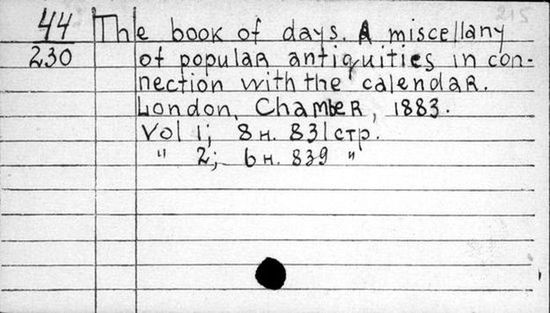 44 The book of days. A miscellany
230 of popular antiquities in con-
nection with the calendar.
London, Chamber, 1883.
Vol 1; 8 н. 831 стр.
" 2; 6 н. 839 "